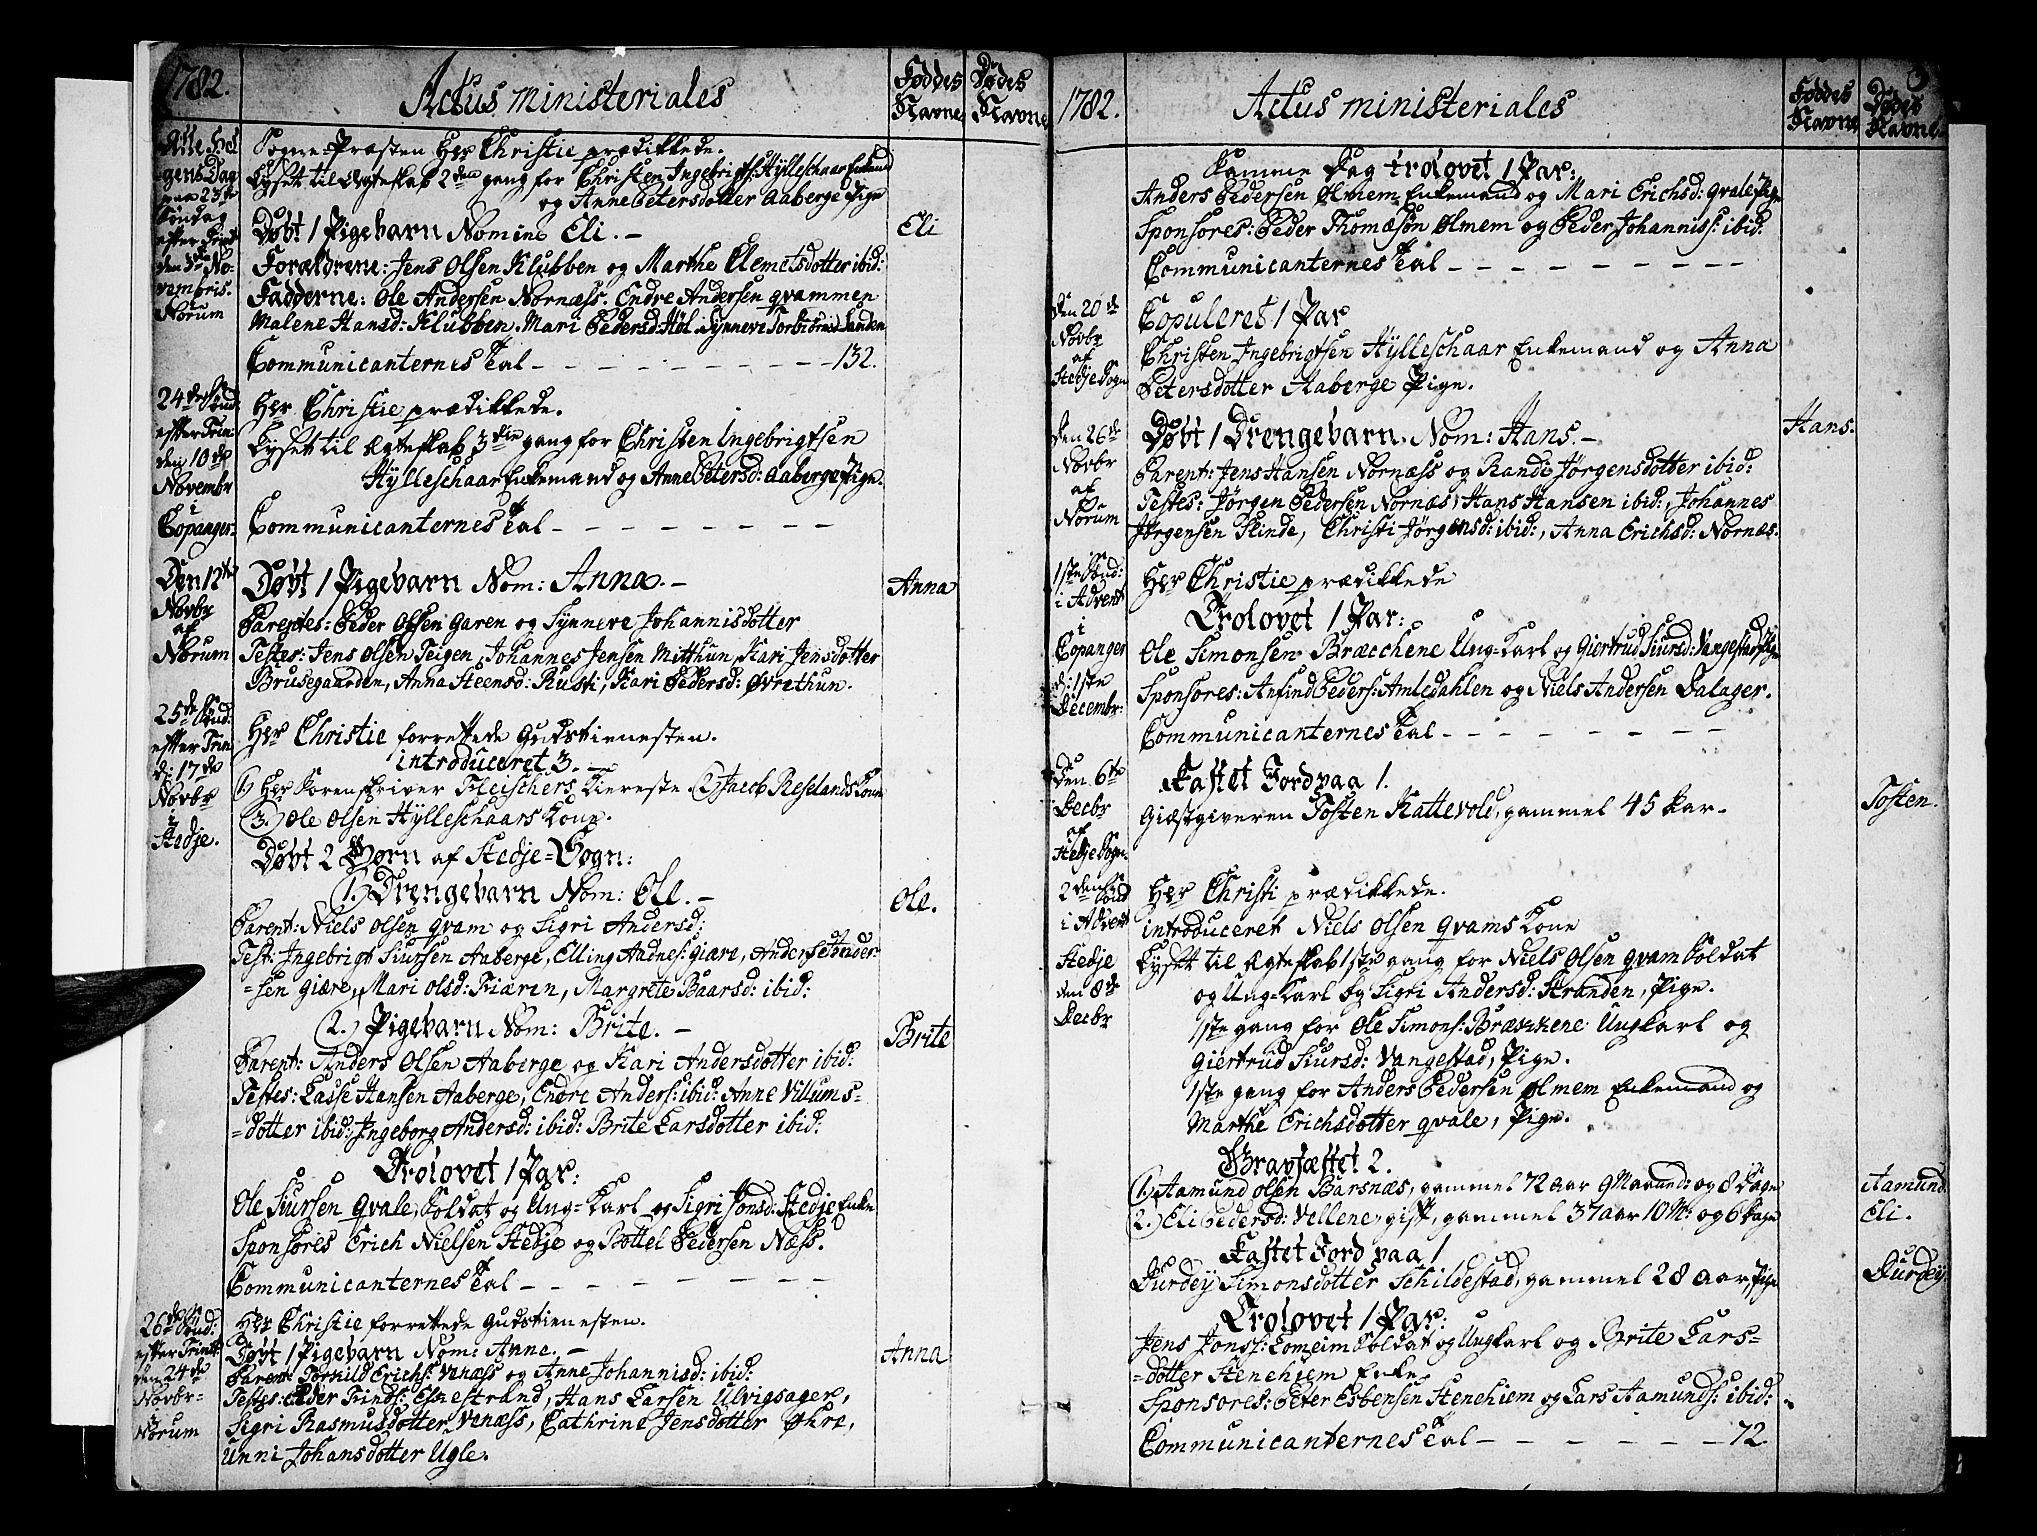 1782.
Actus ministeriales
Føddes Navne
Dødes Navne
Alle Hel
gens Dag
paa 23de
Søndag
efter Trinit
den 3die No-
vembris.
Norum
Sogne-Præsten Her Christie prædikkede.
Lyset til Ægteskab 2den gang for Christen Ingebrigts: Hylleschaar Enkem
og Anne Petersdotter Aaberge Pige
Døbt 1 Pigebarn Nomine Eli. -
Eli
Forældrene: Jens Olsen Klubben og Marthe Clemetsdotter ibid:
Fadderne: Ole Andersen Nornæss. Endre Andersen qvammen
Malene Hansd: Klubben. Mari Pedersd: Høl. Synneve Torbiørnsd Sanden
Communicanternes Tal - - - - - - - - - - 132.
24de Sønd
efter Trin:
den 10de
Novembr
i
Copanger.
Her Christie prædikkede.
Lyset til Ægteskab 3die gang for Christen Ingebrigtsen
Hylleschaar Enkemand og Anne Petersd: Aaberge Pige.
Communicanternes Tal - - - - - - - -
Den 12te
Novbr
af
Norum
Døbt 1 Pigebarn Nom: Anna. -
Anna
Parentes: Peder Olsen Garen og Synneve Johannisdotter
Testes: Jens Olsen Teigen, Johannes Jensen Mitthun, Kari Jensdotter
Brusegaarden, Anna Steensd: Rusti, Kari Pedersd: Øvrethun.
25de Sønd:
efter Trin:
d: 17de
Novbr
i
Stedje.
Her Christie forrettede Gudstienesten.
introduceret 3. -
(1) Her Sorenskriver Fleischers Kiereste. (2) Jacob Reselands Kone
(3.) Ole Olsen Hylleschaars Kone.
Døbt 2 Børn af Stedje-Sogn:
(1.) Drengebarn Nom: Ole. -
Ole.
Parent: Niels Olsen qvam og Sigri Andersd:
Test: Ingebrigt Siursen Aaberge, Elling Aadnes: giære, Anders Ander-
=sen giære, Mari Olsd: Fiæren, Margrete Baarsd: ibid:
(2.) Pigebarn Nom: Brite. -
Brite
Parent: Anders Olsen Aaberge og Kari Andersdotter ibid:
Testes: Lasse Hansen Aaberge, Endre Anders: ibid: Anne Villums-
=dotter ibid: Ingeborg Andersd: ibid: Brite Larsdotter ibid:
Trolovet 1 Par:
Ole Siursen Qvale, Soldat og Ung-Karl og Sigri Jonsd: Stedje Enke
Sponsores Erich Nielsen Stedje og Bottel Pedersen Næss.
Communicanternes Tal - - - - - - - -
26de Sønd:
efter Trinit:
den 24de
Novbr-
Norum
Her Christie forrettede Gudstienesten.
Døbt 1 Pigebarn Nom: Anne. -
Anna
Parent: Torkild Erichs: Venæss og Anne Johannisd: ibid:
Testes: Peder Trinds: Eskestrand, Hans Larsen Ulvigsager,
Sigri Rasmusdotter Venæss, Cathrine Jensdotter Øhre,
Unni Johansdotter Ugle.
1782.
Actus ministeriales
Føddes Navne
Dødes Navne
Samme Dag trolovet 1 Par:
Anders Pedersen Ølmem Enkemand og Mari Erichsd: qvale Pige
Sponsores: Peder Thomæsøn Ølmem og Peder Johanniss: ibid:
Communicanternes Tal - - - - - - - -
den 20de
Novbr
af
Stedje Sogn
Copuleret 1 Par
Christen Ingebrigtsen Hylleschaar Enkemand og Anna
Petersdotter Aaberge Pige.
den 26de
Novbr
af
Norum
Døbt 1 Drengebarn. Nom: Hans. -
Hans.
Parent: Jens Hansen Nornæss og Randi Jørgensdotter ibid:
Testes: Jørgen Pedersen Nornæs, Hans Hansen ibid:, Johannes
Jørgensen Slinde, Christi Jørgensd: ibid:, Anna Erichsd: Nornæs.
1ste Sønd:
i Advent
i
Copanger
d: 1ste
Decembr:
Her Christie prædikkede
Trolovet 1 Par:
Ole Simonsen Bræcchene Ung-Karl og Giertrud Siursd: Vangestad Pige
Sponsores: Anfind Peders: Amledahlen og Niels Andersen Dalager.
Communicanternes Tal - - - - - - -
Den 6te
Decbr
af
Stedje Sogn.
Kastet Jord paa 1.
Giæstgiveren Tosten Kattevold, gammel 45 aar.
Tosten.
2den Sønd
i Advent
Stedje
den 8de
Decbr
Her Christi prædikkede.
introduceret Niels Olsen Qvams Kone
Lyset til Ægteskab 1ste gang for Niels Olsen qvam Soldat
og Ung-Karl og Sigri Andersd: Stranden, Pige.
1ste gang for Ole Simons: Bræckene Ungkarl og
Giertrud Siursd: Vangestad, Pige.
1ste gang for Anders Pedersen Ølmem Enkemand og
Marthe Erichsdotter qvale, Pige.
Gravfæstet 2.
(1.) Aamund Olsen Barsnæs, gammel 72 aar 9 Maaned: og 8 dage
Aamund
2.) Eli Pedersd: Vellene, gift, gammel 37 aar 10 M: og 6 dage
Eli.
Kastet Jord paa 1
Durdey Simonsdotter Schildestad, gammel 28 aar, Pige
Durdey
Trolovet 1 Par:
Jens Jonss: Lomeim Soldat og Ungkarl og Brite Lars-
=dotter Stenehiem Enke
Sponsores: Peter Esbensen Stenehiem og Lars Aamunds: ibid:
Communicanternes Tal - - - - - - - 72